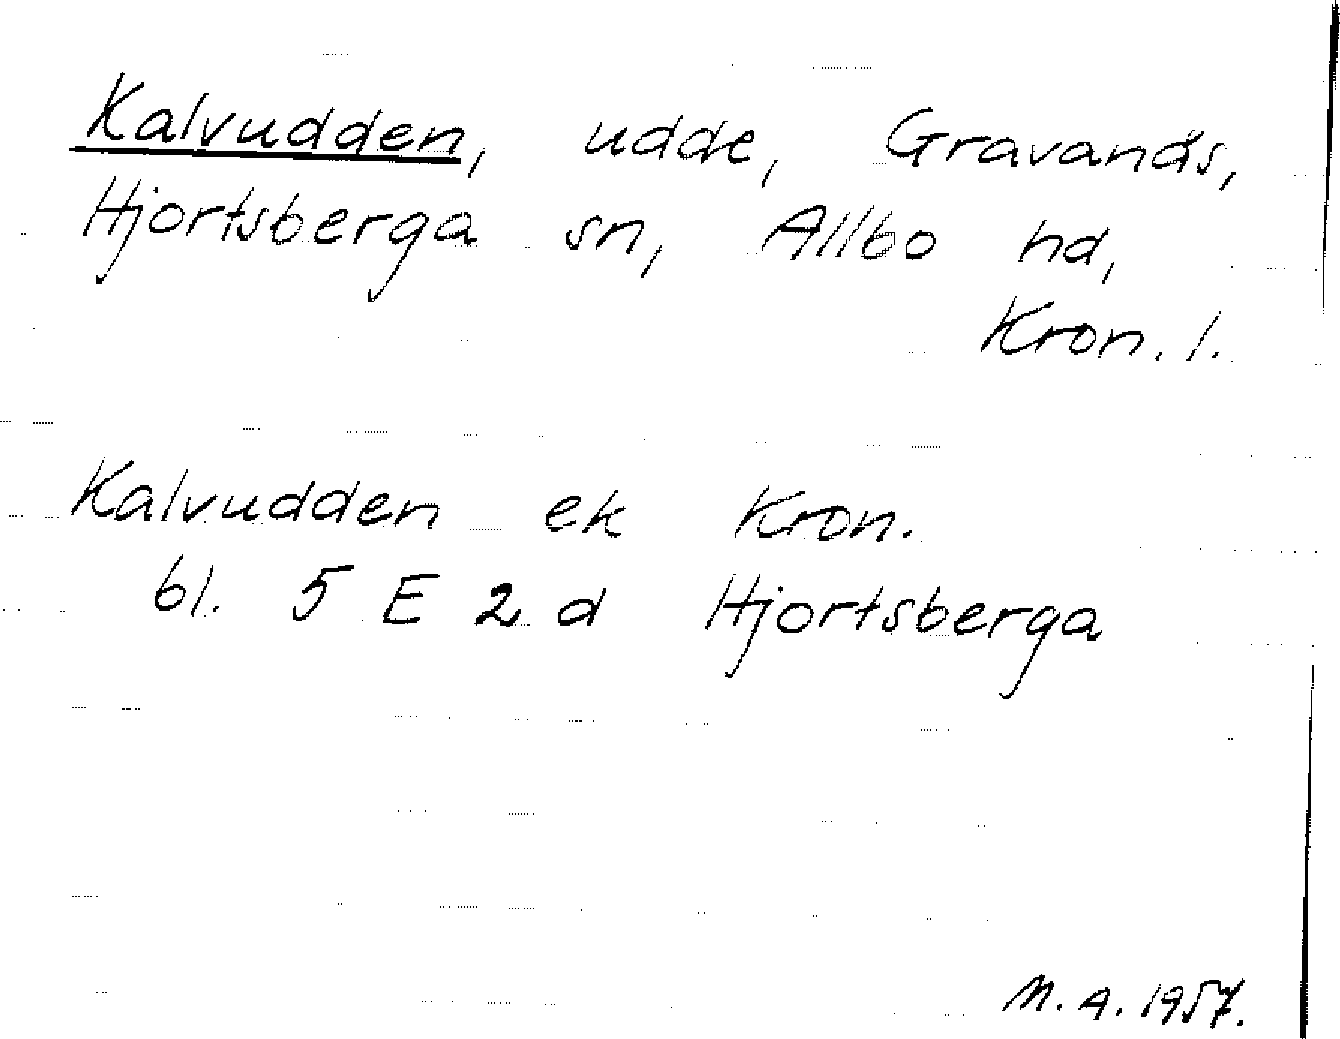 Kalvudden, udde, Gravanäs,
Hjortsberga sn, Allbo hd,
Kron. l.
Kalvudden ek Kron.
bl. 5 E 2 d Hjortsberga
M. A. 1957.